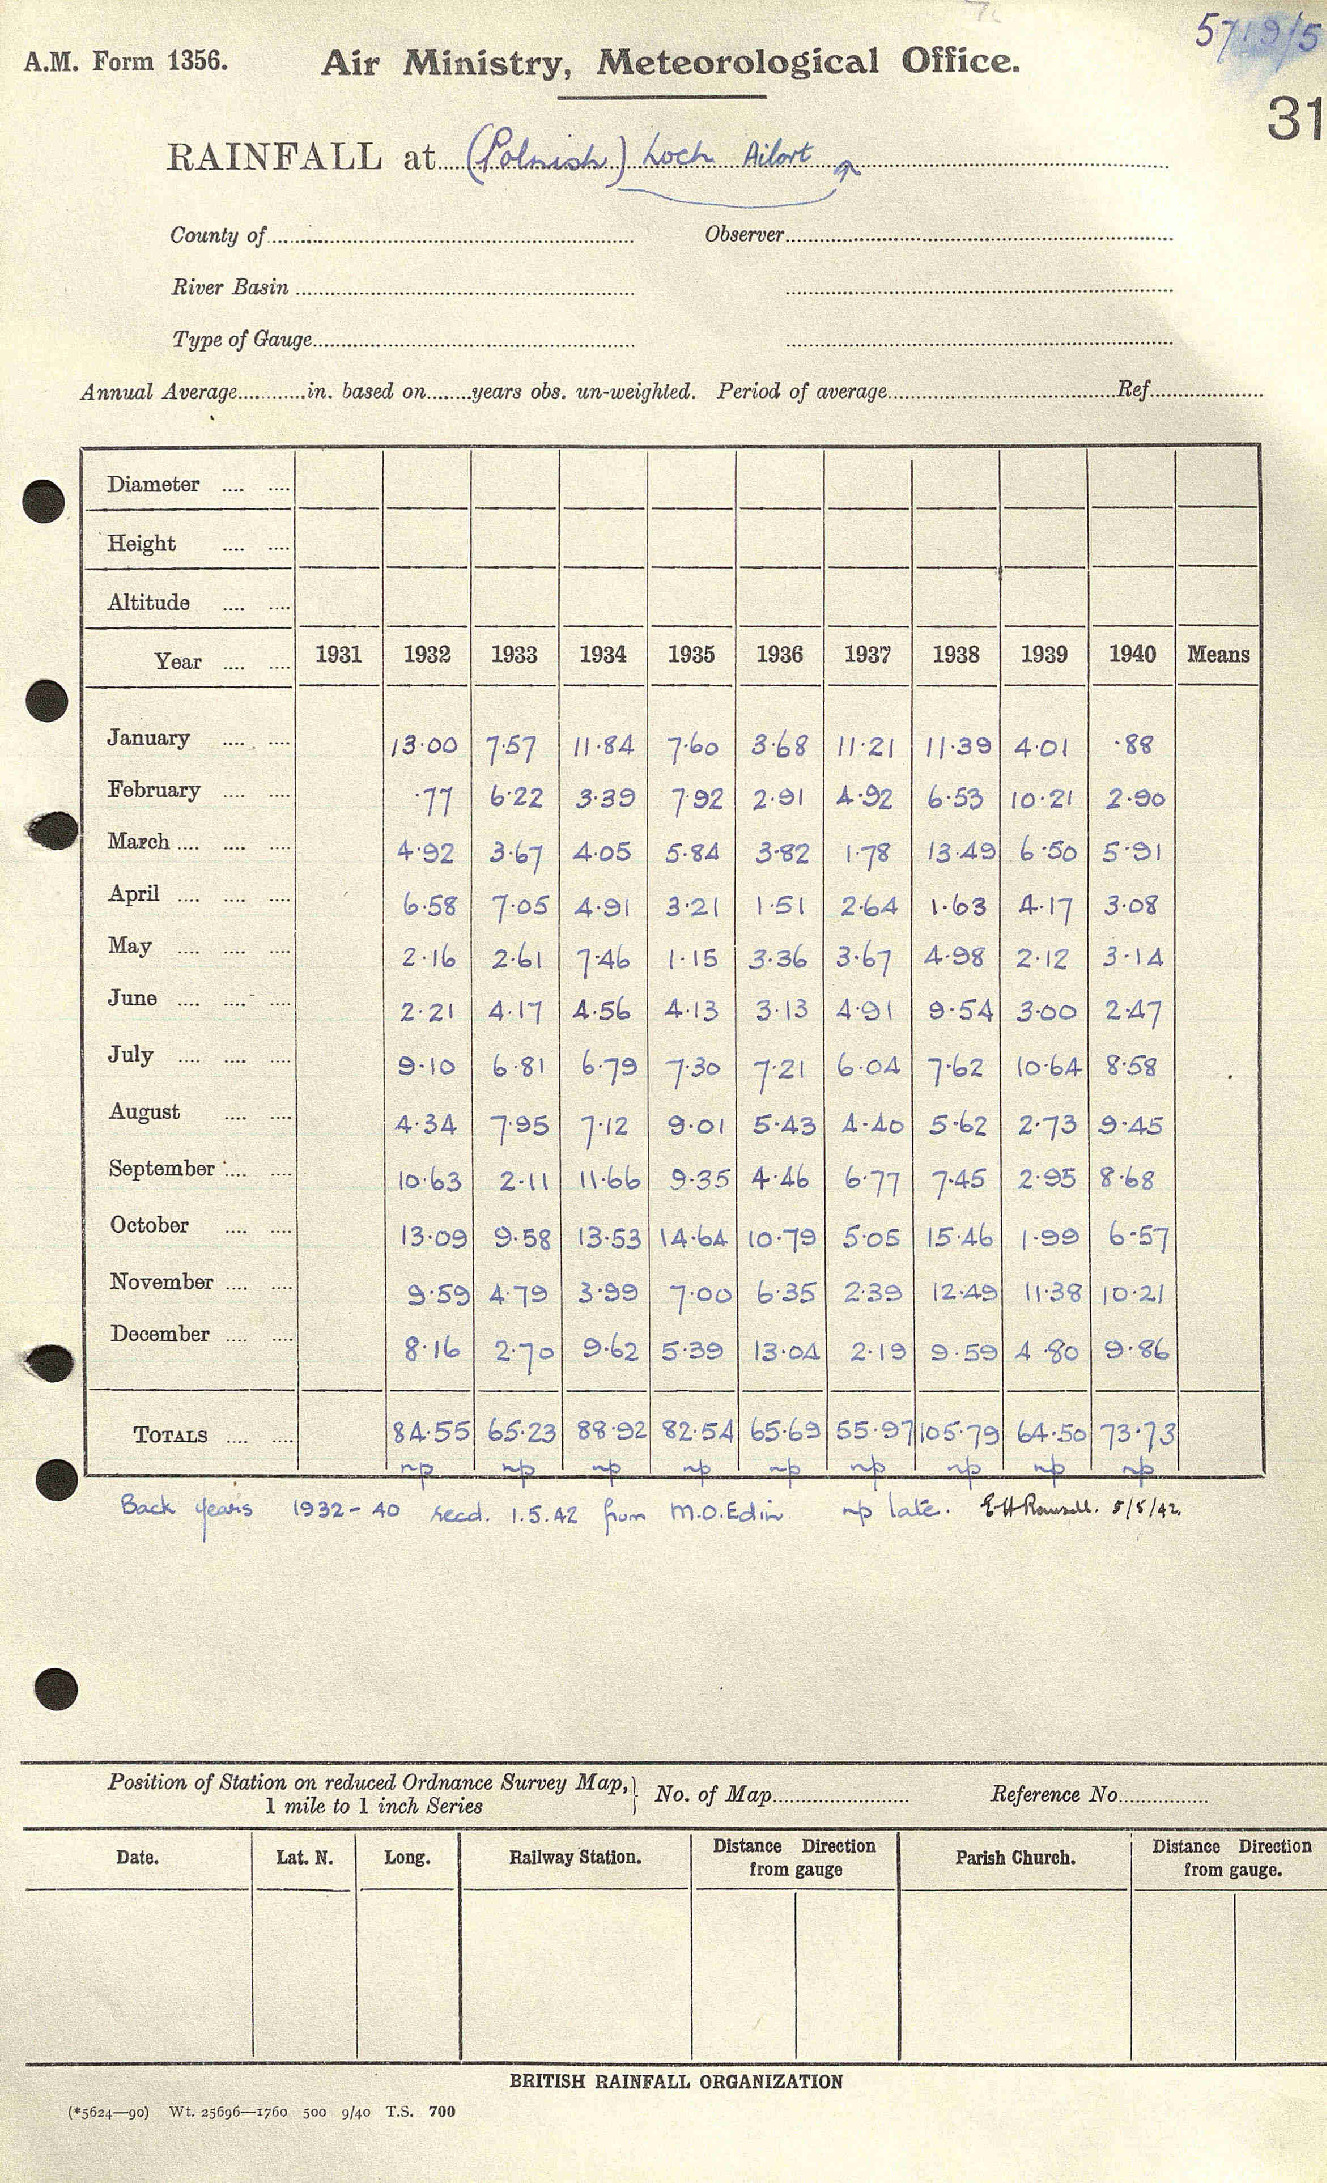 5719/5
A.M. Form 1356. Air Ministry, Meteorological Office.
31
RAINFALL at (Polnish) Loch Ailort
County of Observer
River Basin
Type of Gauge
Annual Average in. based on years obs. un-weighted. Period of average Ref.
Diameter
Height
Altitude
Year 1931 1932 1933 1934 1935 1936 1937 1938 1939 1940 Means
January 13.00 7.57 11.84 7.60 3.68 11.21 11.39 4.01 .88
February .77 6.22 3.39 7.92 2.91 4.92 6.53 10.21 2.90
March 4.92 3.67 4.05 5.84 3.82 1.78 13.49 6.50 5.91
April 6.58 7.05 4.91 3.21 1.51 2.64 1.63 4.17 3.08
May 2.16 2.61 7.46 1.15 3.36 3.67 4.98 2.12 3.14
June 2.21 4.17 4.56 4.13 3.13 4.91 9.54 3.00 2.47
July 9.10 6.81 6.79 7.30 7.21 6.04 7.62 10.64 8.58
August 4.34 7.95 7.12 9.01 5.43 4.40 5.62 2.73 9.45
September 10.63 2.11 11.66 9.35 4.46 6.77 7.45 2.95 8.68
October 13.09 9.58 13.53 14.64 10.79 5.05 15.46 1.99 6.57
November 9.59 4.79 3.99 7.00 6.35 2.39 12.49 11.38 10.21
December 8.16 2.70 9.62 5.39 13.04 2.19 9.59 4.80 9.86
TOTALS 84.55 65.23 88.92 82.54 65.69 55.97 105.79 64.50 73.73
np np np np np np np np np
Back years 1932-40 recd. 1.5.42 from M.O.Edin np late. 5/5/42
Position of Station on reduced Ordnance Survey Map, No. of Map Reference No.
1 mile to 1 inch Series
Date. Lat. N. Long. Railway Station. Distance Direction from gauge Parish Church. Distance Direction from gauge.
BRITISH RAINFALL ORGANIZATION
(*5624—90) Wt. 25696—1760 500 9/40 T.S. 700